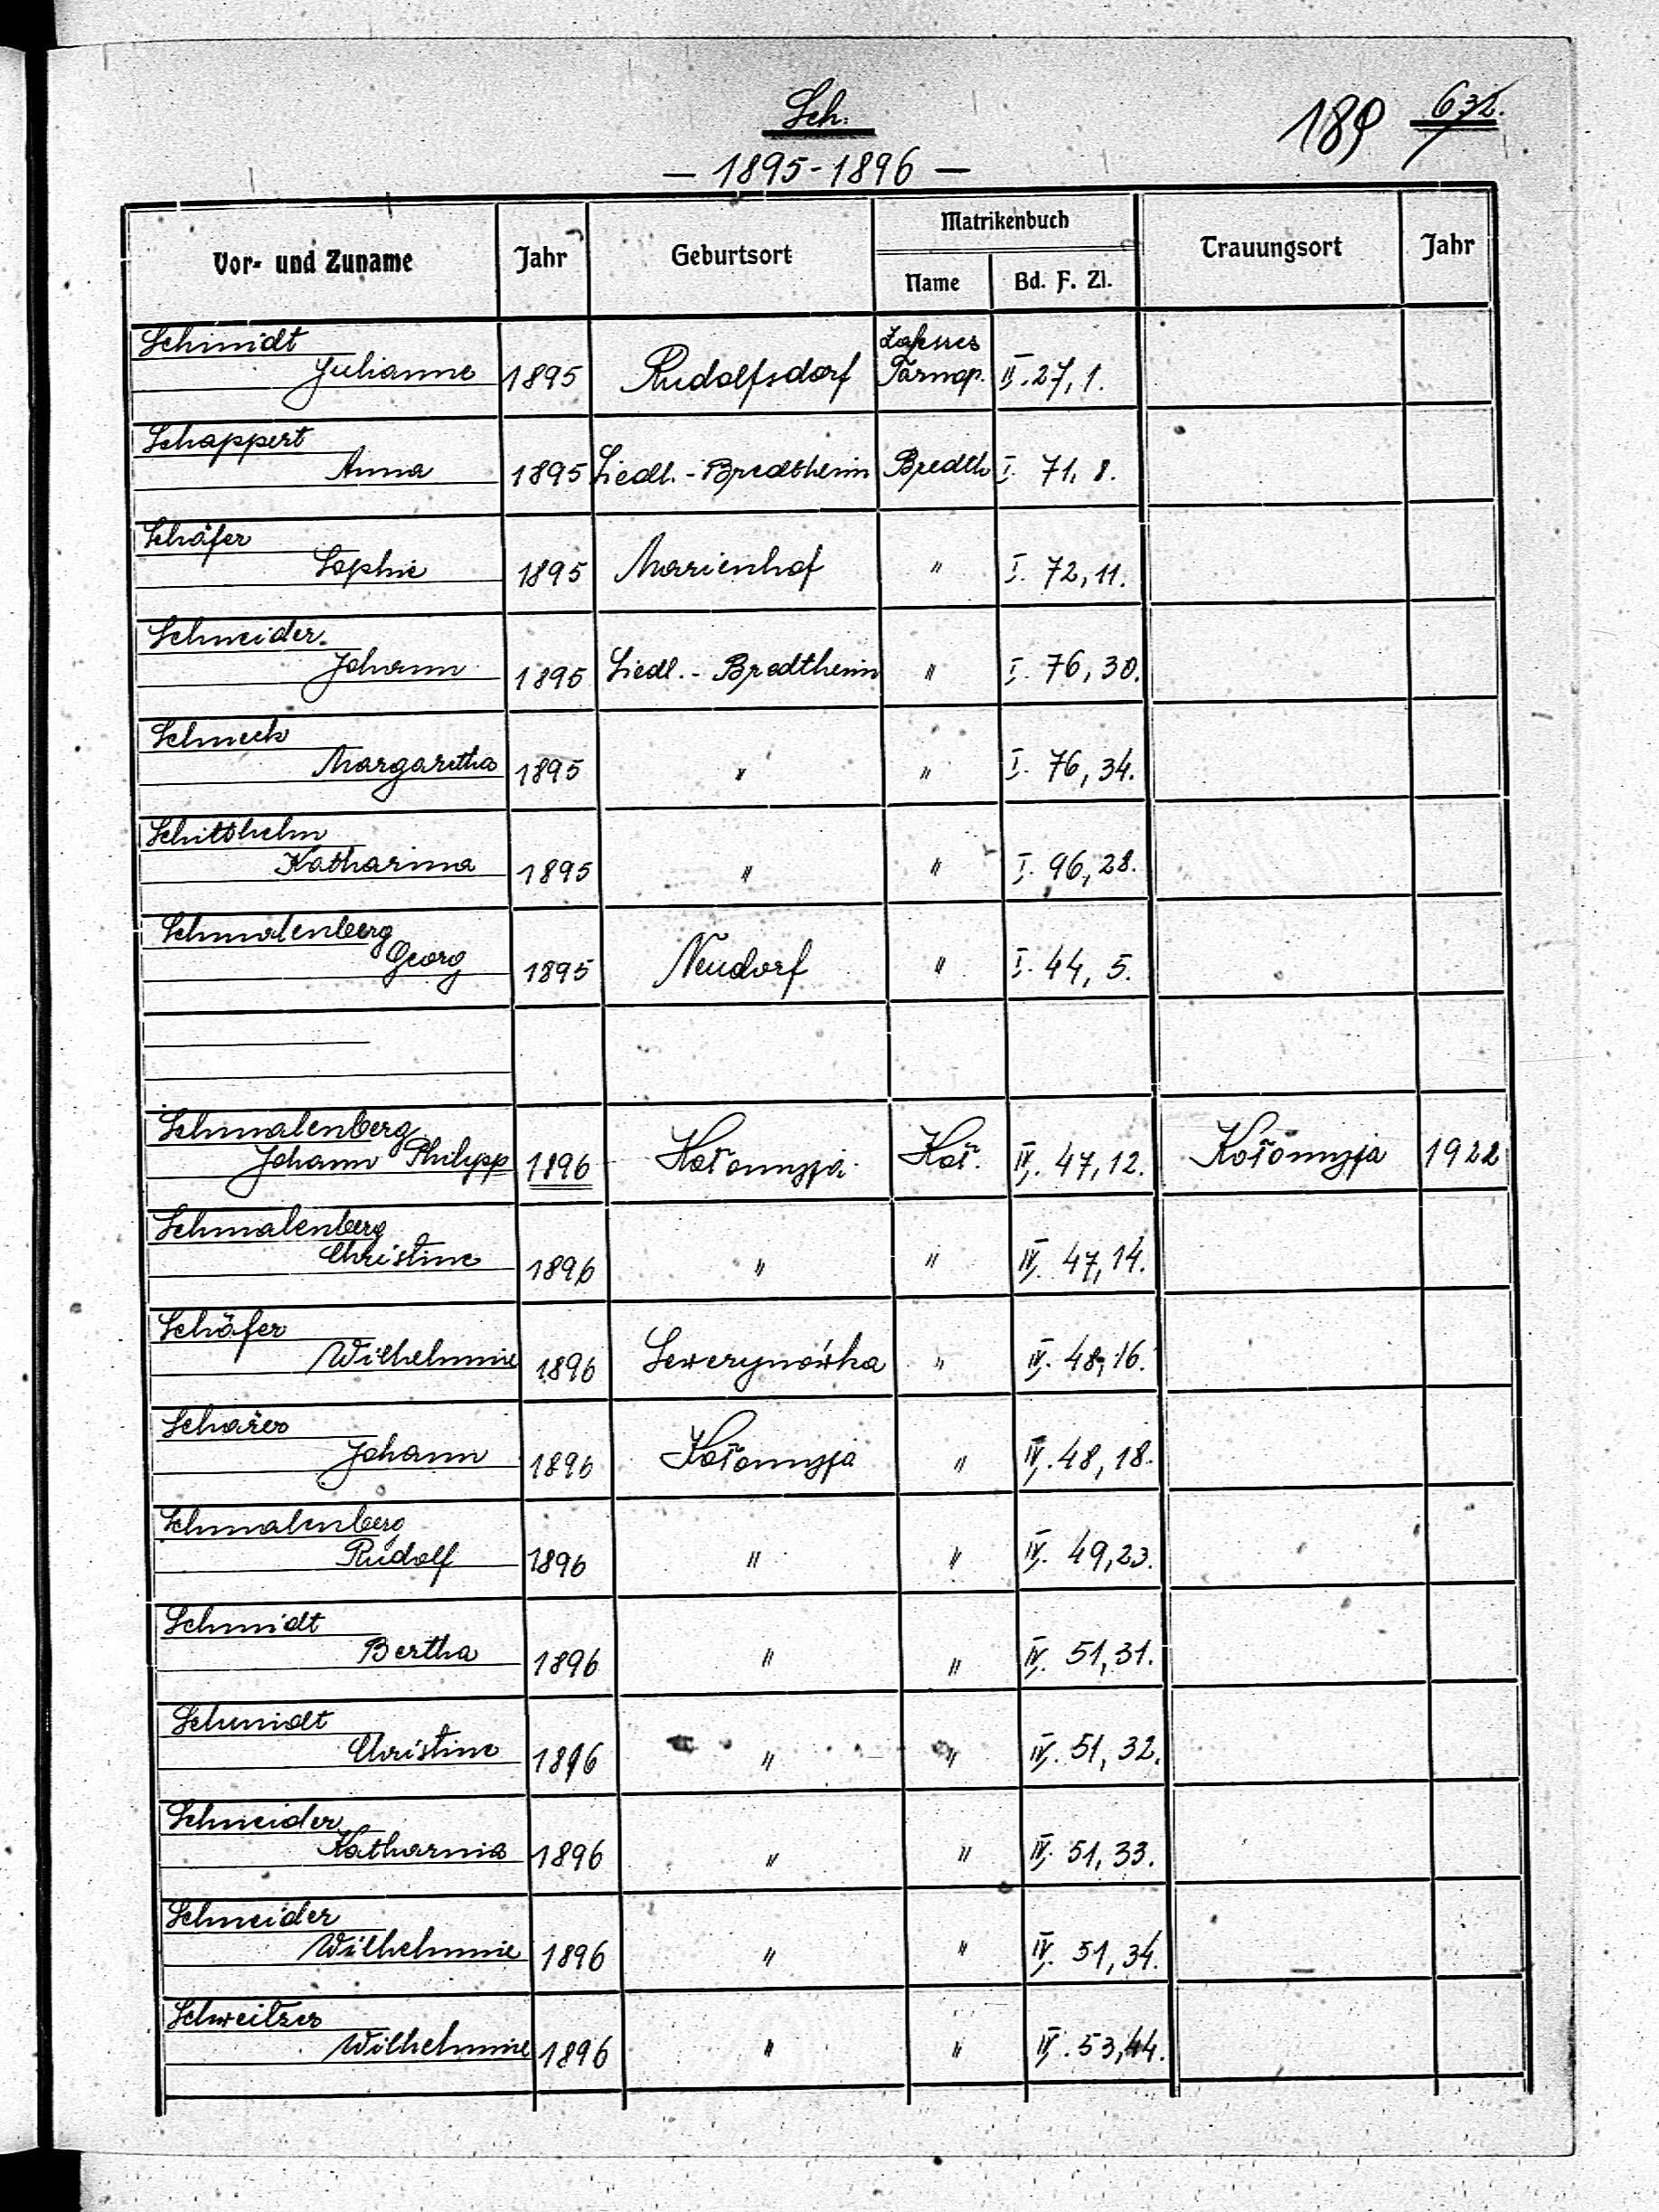 Sch.
189 632.
— 1895-1896 —
Vor- und Zuname Jahr Geburtsort Matrikenbuch Trauungsort Jahr
Name Bd. F. Zl.
Schmidt
Julianne 1895 Rudolfsdorf Tarnop. II. 27, 1.
Schappert
Anna 1895 Siedl.-Bredtheim Bredth I. 71, 8.
Schäfer
Sophie 1895 Marienhof " I. 72, 11.
Schneider
Johann 1895 Siedl.-Bredtheim " I. 76, 30.
Schmeck
Margaretha 1895 " " I. 76, 34.
Schitthelm
Katharina 1895 " " I. 96, 28.
Schmalenberg
Georg 1895 Neudorf " I. 44, 5.
Schmalenberg
Johann Philipp 1896 Kołomyja Koł. IV. 47, 12. Kołomyja 1922
Schmalenberg
Christine 1896 " " IV. 47, 14.
Schäfer
Wilhelmine 1896 Sewerynówka " IV. 48, 16.
Johann 1896 Kołomyja " IV. 48, 18.
Schmalenberg
Rudolf 1896 " " IV. 49, 23.
Schmidt
Bertha 1896 " " IV. 51, 31.
Schmidt
Christine 1896 " " IV. 51, 32.
Schneider
Katharina 1896 " " IV. 51, 33.
Schneider
Wilhelmine 1896 " " IV. 51, 34.
Schweitzer
Wilhelmine 1896 " " IV. 53, 44.